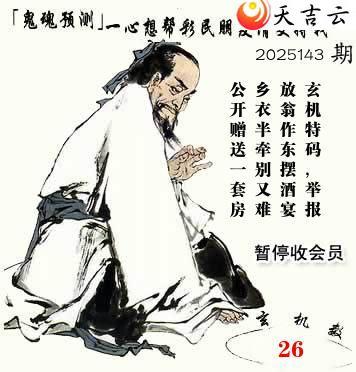 天吉云
「鬼魂预测」一心想帮彩民朋友
2025143 期
玄机特码，举报
放翁作东摆酒宴
乡衣半牵别又难
公开赠送一套房
暂停收会员
玄机
26